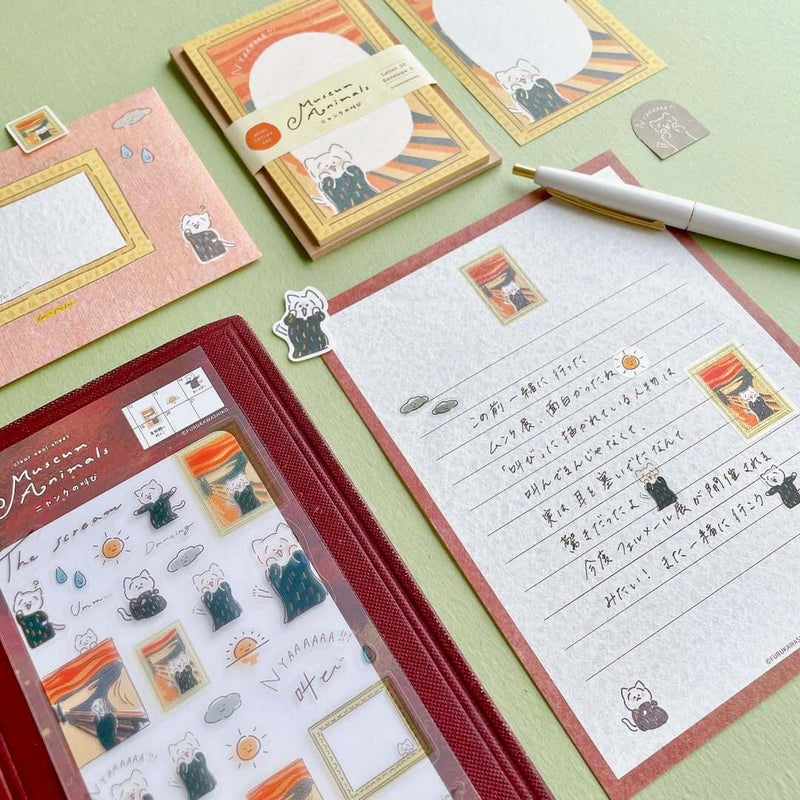 NYAAAAA!!!
Museum
Animals
ニャンクの叫び
mini
letter
set
Letter 20
Envelope 5
clear seal sheet
Museum
Animals
ニャンクの叫び
©FURUKAWASHIKO
The scream
Dancing
Umm...
NYAAAAAA!!!
叫び
NYAAAAA!!!
この前一緒に行った
ムンク展、面白かったね
「叫び」に描かれている人物は
叫んでるんじゃなくて、
実は耳を塞いでたなんて
驚きだったよ
今度フェルメール展が開催される
みたい！また一緒に行こう
©FURUKAWASHIKO